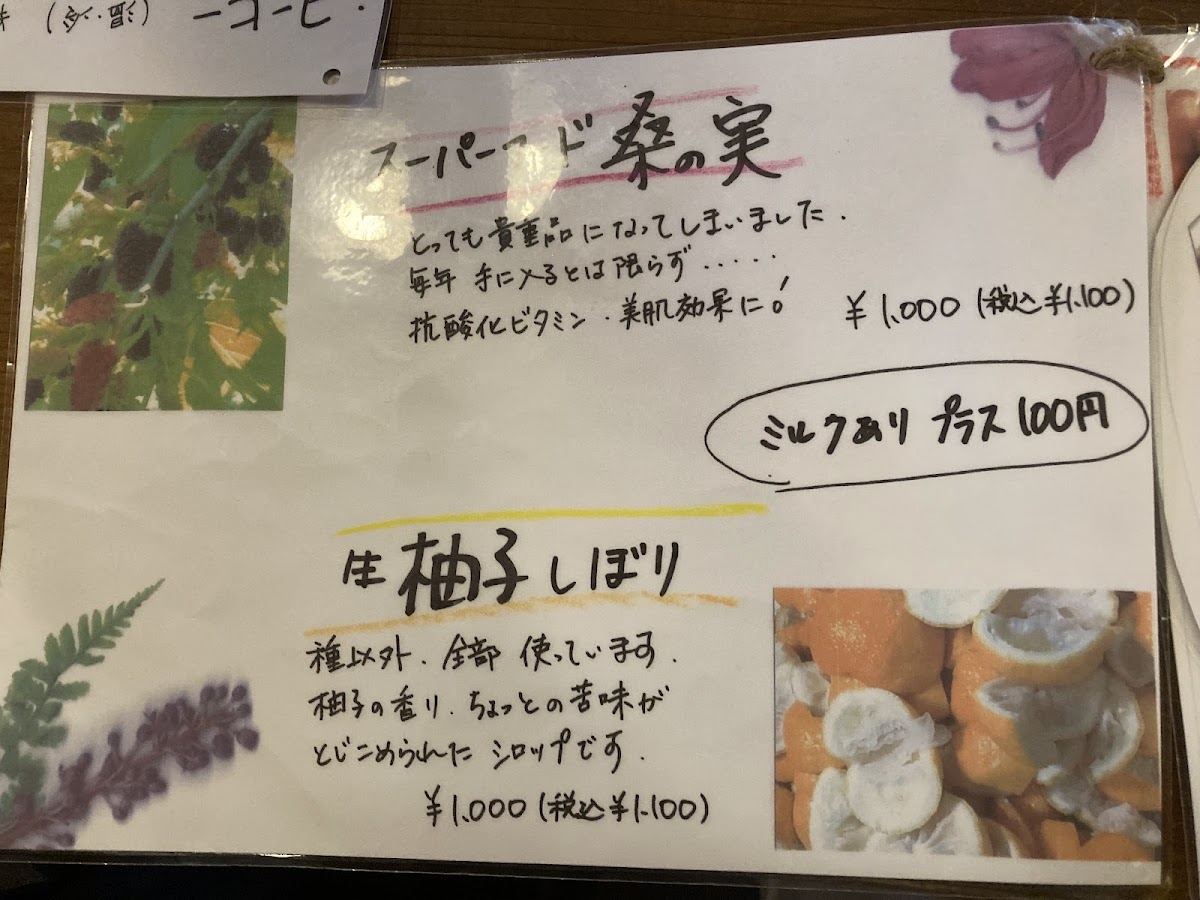 コーヒー
スーパーフード 桑の実
とっても貴重品になってしまいました.
毎年 手に入るとは限らず.....
抗酸化ビタミン.美肌効果に!
¥1,000(税込¥1,100)
ミルクあり プラス100円
生 柚子しぼり
種以外.全部 使っています.
柚子の香り.ちょっとの苦味が
とじこめられた シロップです.
¥1,000(税込¥1,100)